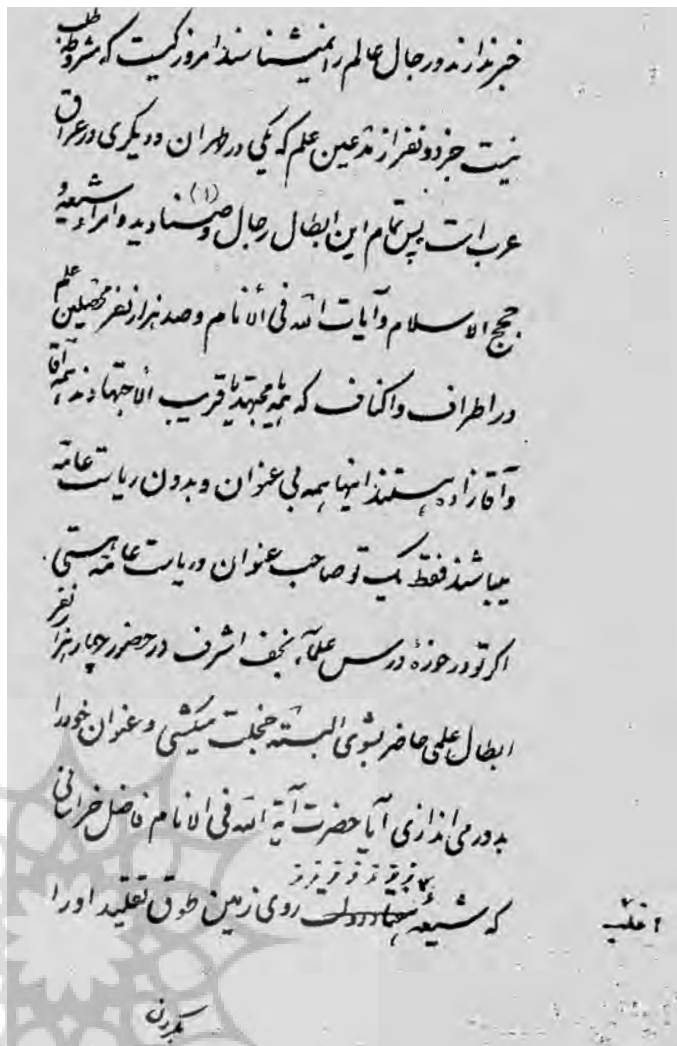 خبر ندارند و رجال عالم را نمیشناسند امروز کیست که مشروطه طلب
نیست جز دو نفر از مدعین علم که یکی در طهران و دیگری در عراق
عرب است پس تمام این ابطال رجال و صنادید (۱) و امراء شیعه و
حجج الاسلام و آیات الله فی الأنام و صد هزار نفر محصلین علم
در اطراف و اکناف که همه مجتهد یا قریب الأجتهادند همه آقا
و آقازاده هستند اینها همه بی عنوان و بدون ریاست عامه
میباشند فقط یک تو صاحب عنوان و ریاست عامه هستی.
اگر تو در حوزهٔ درس علمآء نجف اشرف در حضور چهار هزار نفر
ابطال علمی حاضر بشوی البته خجلت میکشی و عنوان خود را
بدور می اندازی آیا حضرت آیة الله فی الانام فاضل خراسانی
که شیعهٔ هفتاد دولت روی زمین طوق تقلید او را
اغلب
بگردن